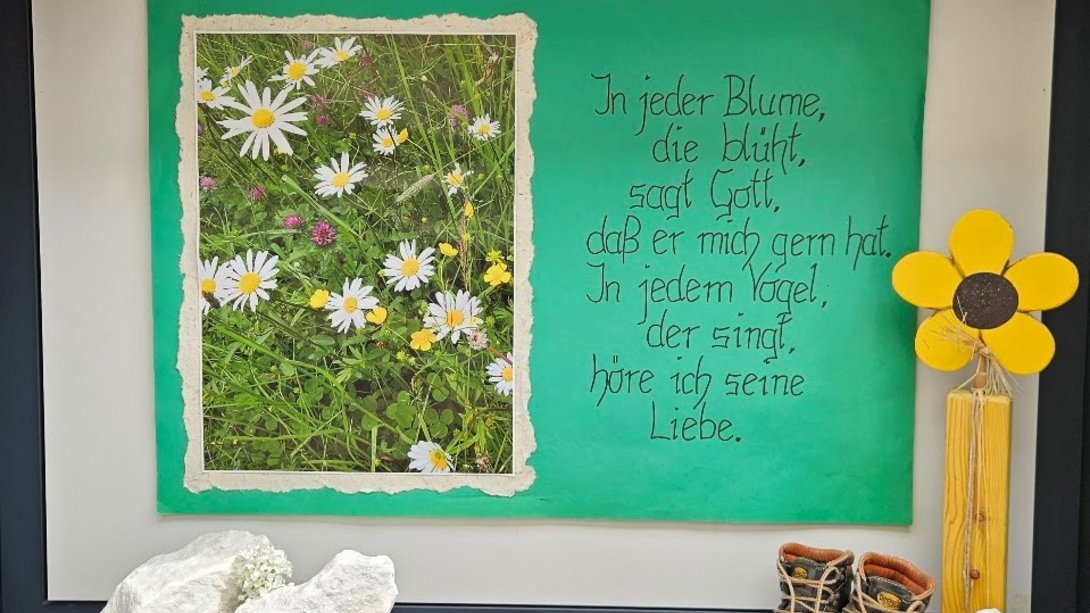 In jeder Blume,
die blüht,
sagt Gott,
daß er mich gern hat.
In jedem Vogel,
der singt,
höre ich seine
Liebe.